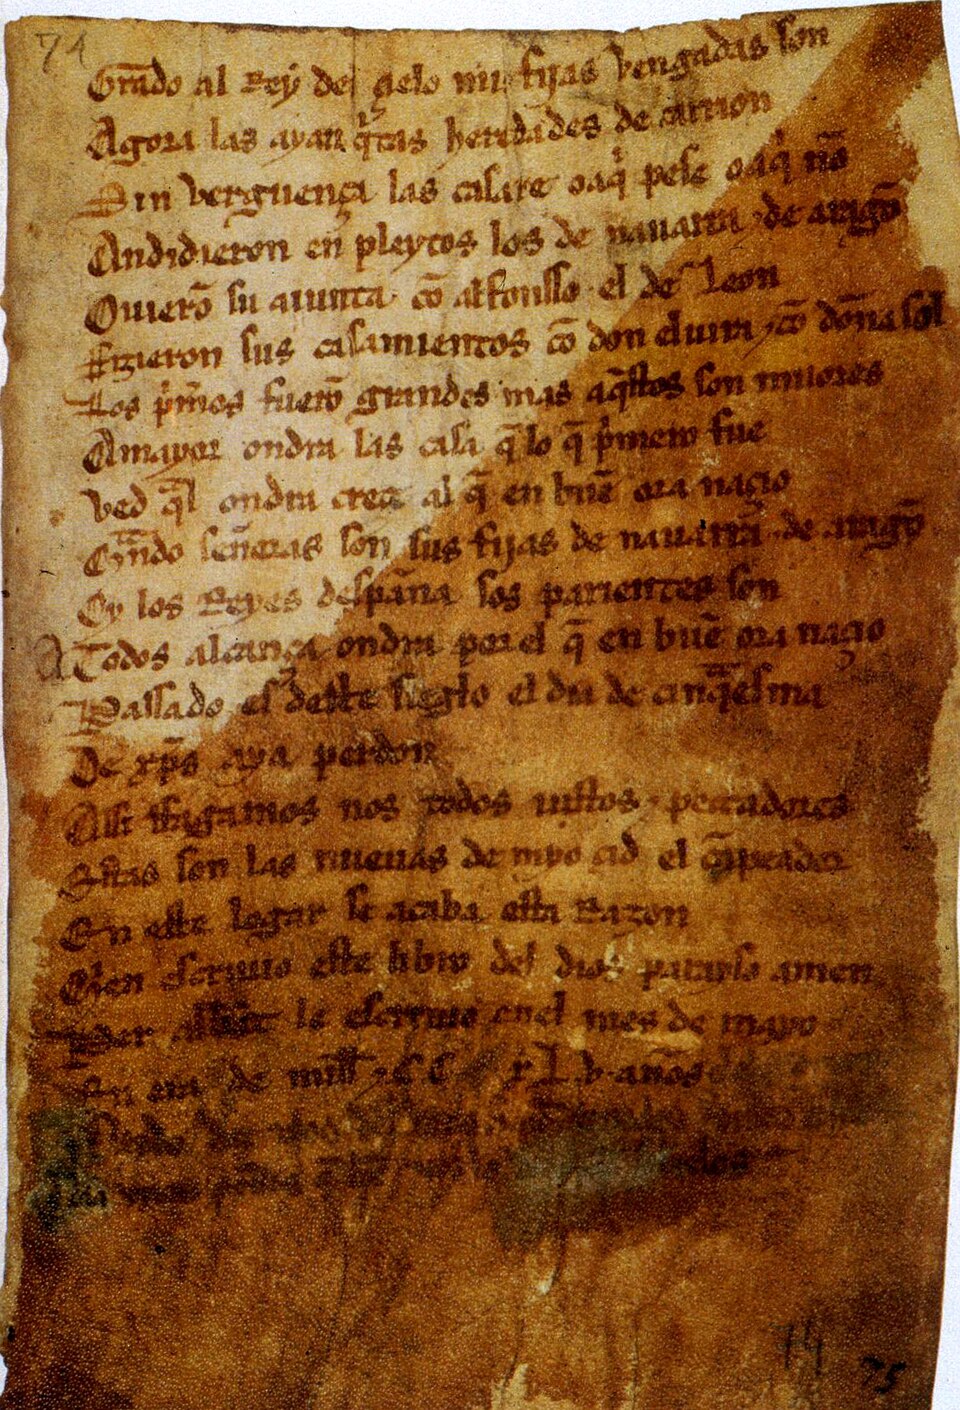 74
Grãdo al Rey del çielo mis fijas vengadas son
Agora las ayan q̃tas heredades de carrion
Sin verguença las casare o aq̃ pese o aq̃ nõ
Andidieron en pleytos los de nauarra ⁊ de aragõ
Ouierõ su aiunta cõ alfonsso el de Leon
Fizieron sus casamientos cõ don eluira ⁊ cõ doña sol
Los p̃m̃os fuerõ grandes mas aq̃stos son miiores
A mayor ondra las casa q̃ lo q̃ p̃mero fue
Ved q̃l ondra creçe al q̃ en buẽ ora naçio
Q̃ndo señoras son sus fijas de nauarra ⁊ de aragõ
Oy los Reyes despaña sos parientes son
A Todos alcança ondra por el q̃ en buẽ ora naçio
Passado es deste sieglo el dia de cinq̃esma
De xp̃s aya perdon
Assi ffagamos nos todos iustos ⁊ peccadores
Estas son las nueuas de myo çid el cãpeador
En este logar se acaba esta Razon
Quien escriuio este libro del dios parayso amen
Per abbat le escriuio enel mes de mayo
En era de mill ⁊ C.C xL.v. años
74
75